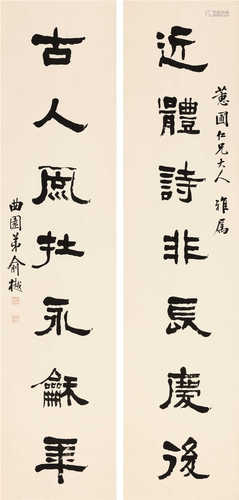 蕙圃仁兄大人 雅屬
近體詩非長慶後
古人風扗永龢年
曲園弟俞樾